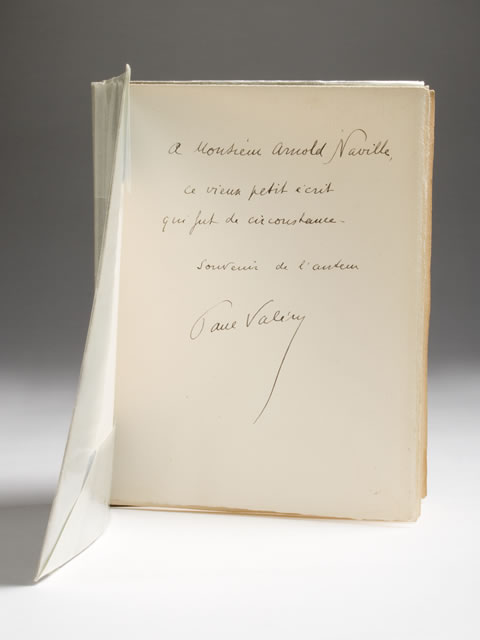 A Monsieur Arnold Naville,
ce vieux petit écrit
qui fut de circonstance -
Souvenir de l'auteur
Paul Valéry